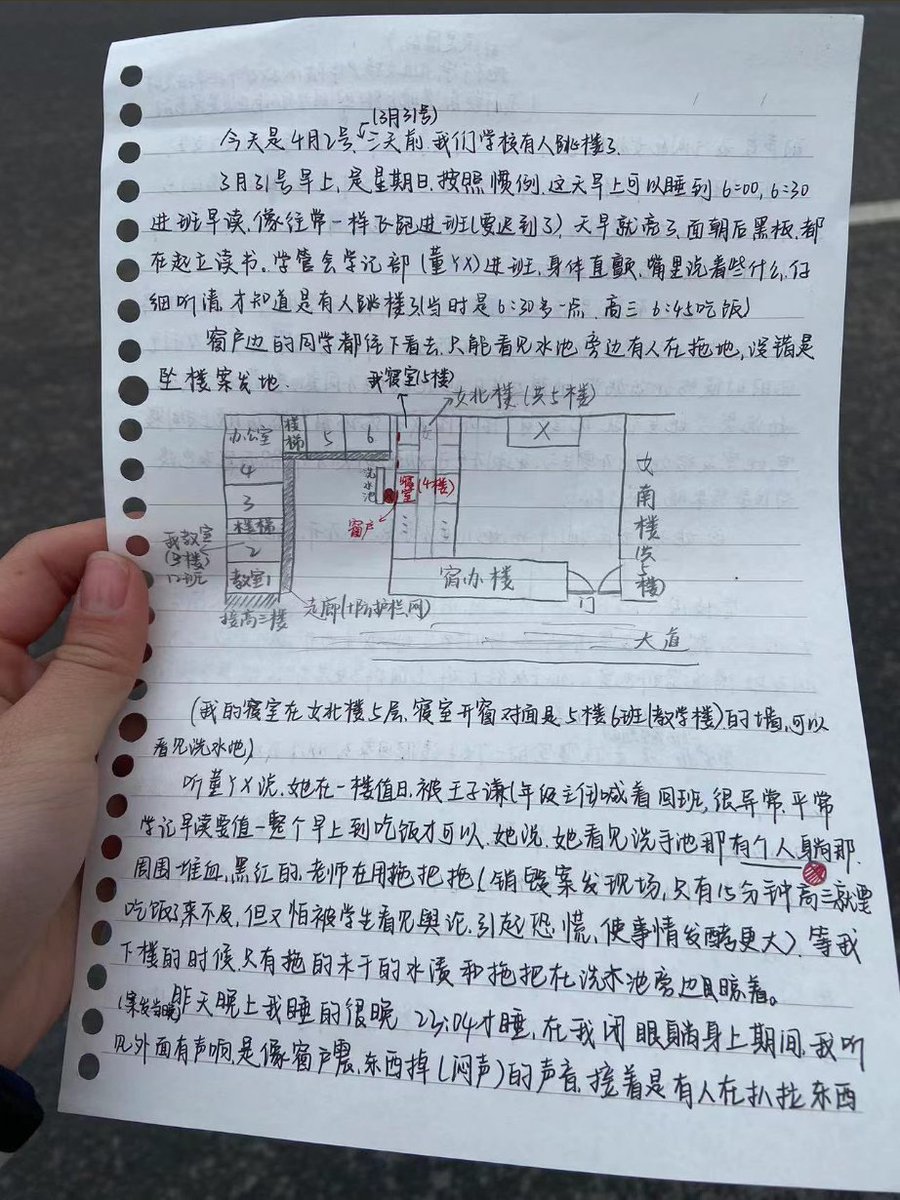 (3月31号)
今天是4月2号,三天前,我们学校有人跳楼了.
3月31号早上,是星期日.按照惯例.这天早上可以睡到6:00,6:30
进班早读.像往常一样飞跑进班(要迟到了),天早就亮了.面朝后黑板.都
在起立读书。学管会学记部(董YX)进班,身体直颤,嘴里说着些什么,仔
细听清,才知道是有人跳楼了(当时是6:30多一点.高三6:45吃饭)
窗户边的同学都往下看去,只能看见水池旁边有人在拖地,没错是
坠楼案发地.
我寝室(5楼)
女北楼(共5楼)
办公室
楼梯
5
6
X
4
3
楼梯
2
教室1
洗水池
寝室(4楼)
窗户
女南楼(共5楼)
我教室(3楼)12班
宿办楼
门
接高三楼
走廊(+防护栏.网)
大道
(我的寝室在女北楼5层,寝室开窗对面是5楼6班(教学楼)的墙,可以
看见洗水池)
听董YX说,她在一楼值日,被王子谦(年级主任)喊着回班,很异常,平常
学记早读要值一整个早上到吃饭才可以.她说,她看见洗手池那有个人躺那.
周围堆血,黑红的,老师在用拖把拖(销毁案发现场,只有15分钟高三就要
吃饭了来不及,但又怕被学生看见舆论,引起恐慌,使事情发酵更大).等我
下楼的时候,只有拖的未干的水渍和拖把在洗水池旁边晾着。
(案发当晚)昨天晚上我睡的很晚 23:04才睡,在我闭眼躺身上期间,我听
见外面有声响,是像窗户震,东西掉(闷声)的声音,接着是有人在扒拉东西